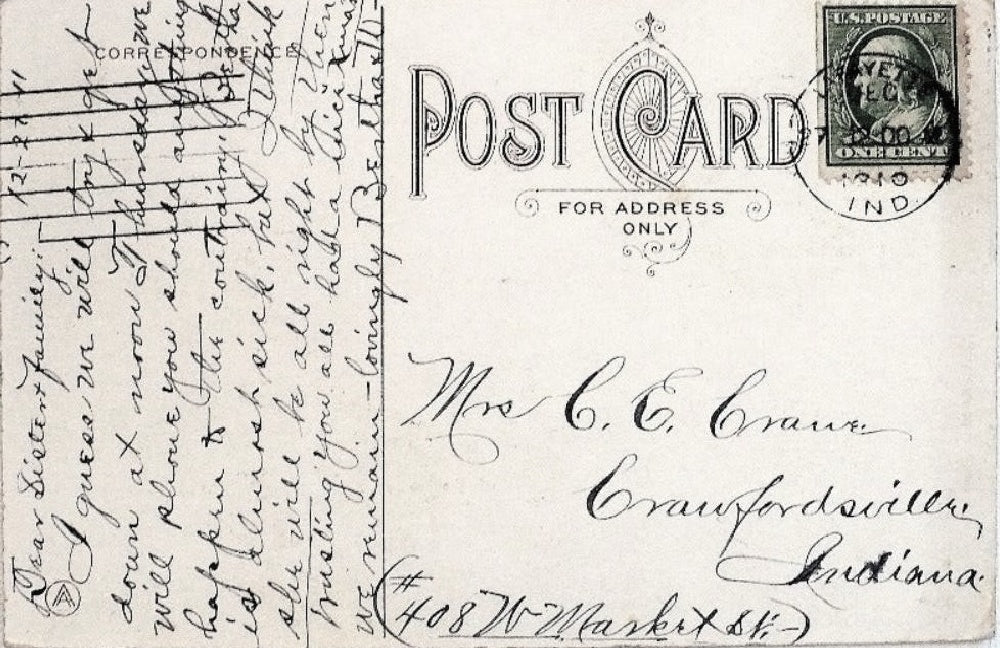 CORRESPONDENCE
12-27-11
Dear Sister & Family:
I guess we will try & get
down at noon Thursday. We
will phone you should anything
happen to the contrary.
is almost sick, but I think
she will be all right by then
Trusting you all had a nice Xmas
we remain - lovingly
POST CARD
FOR ADDRESS
ONLY
U.S. POSTAGE
ONE CENT
LAFAYETTE
DEC
12-00 M
IND.
Mrs C. E. Crane
Crawfordsville,
Indiana.
(# 408 W Market St.-)